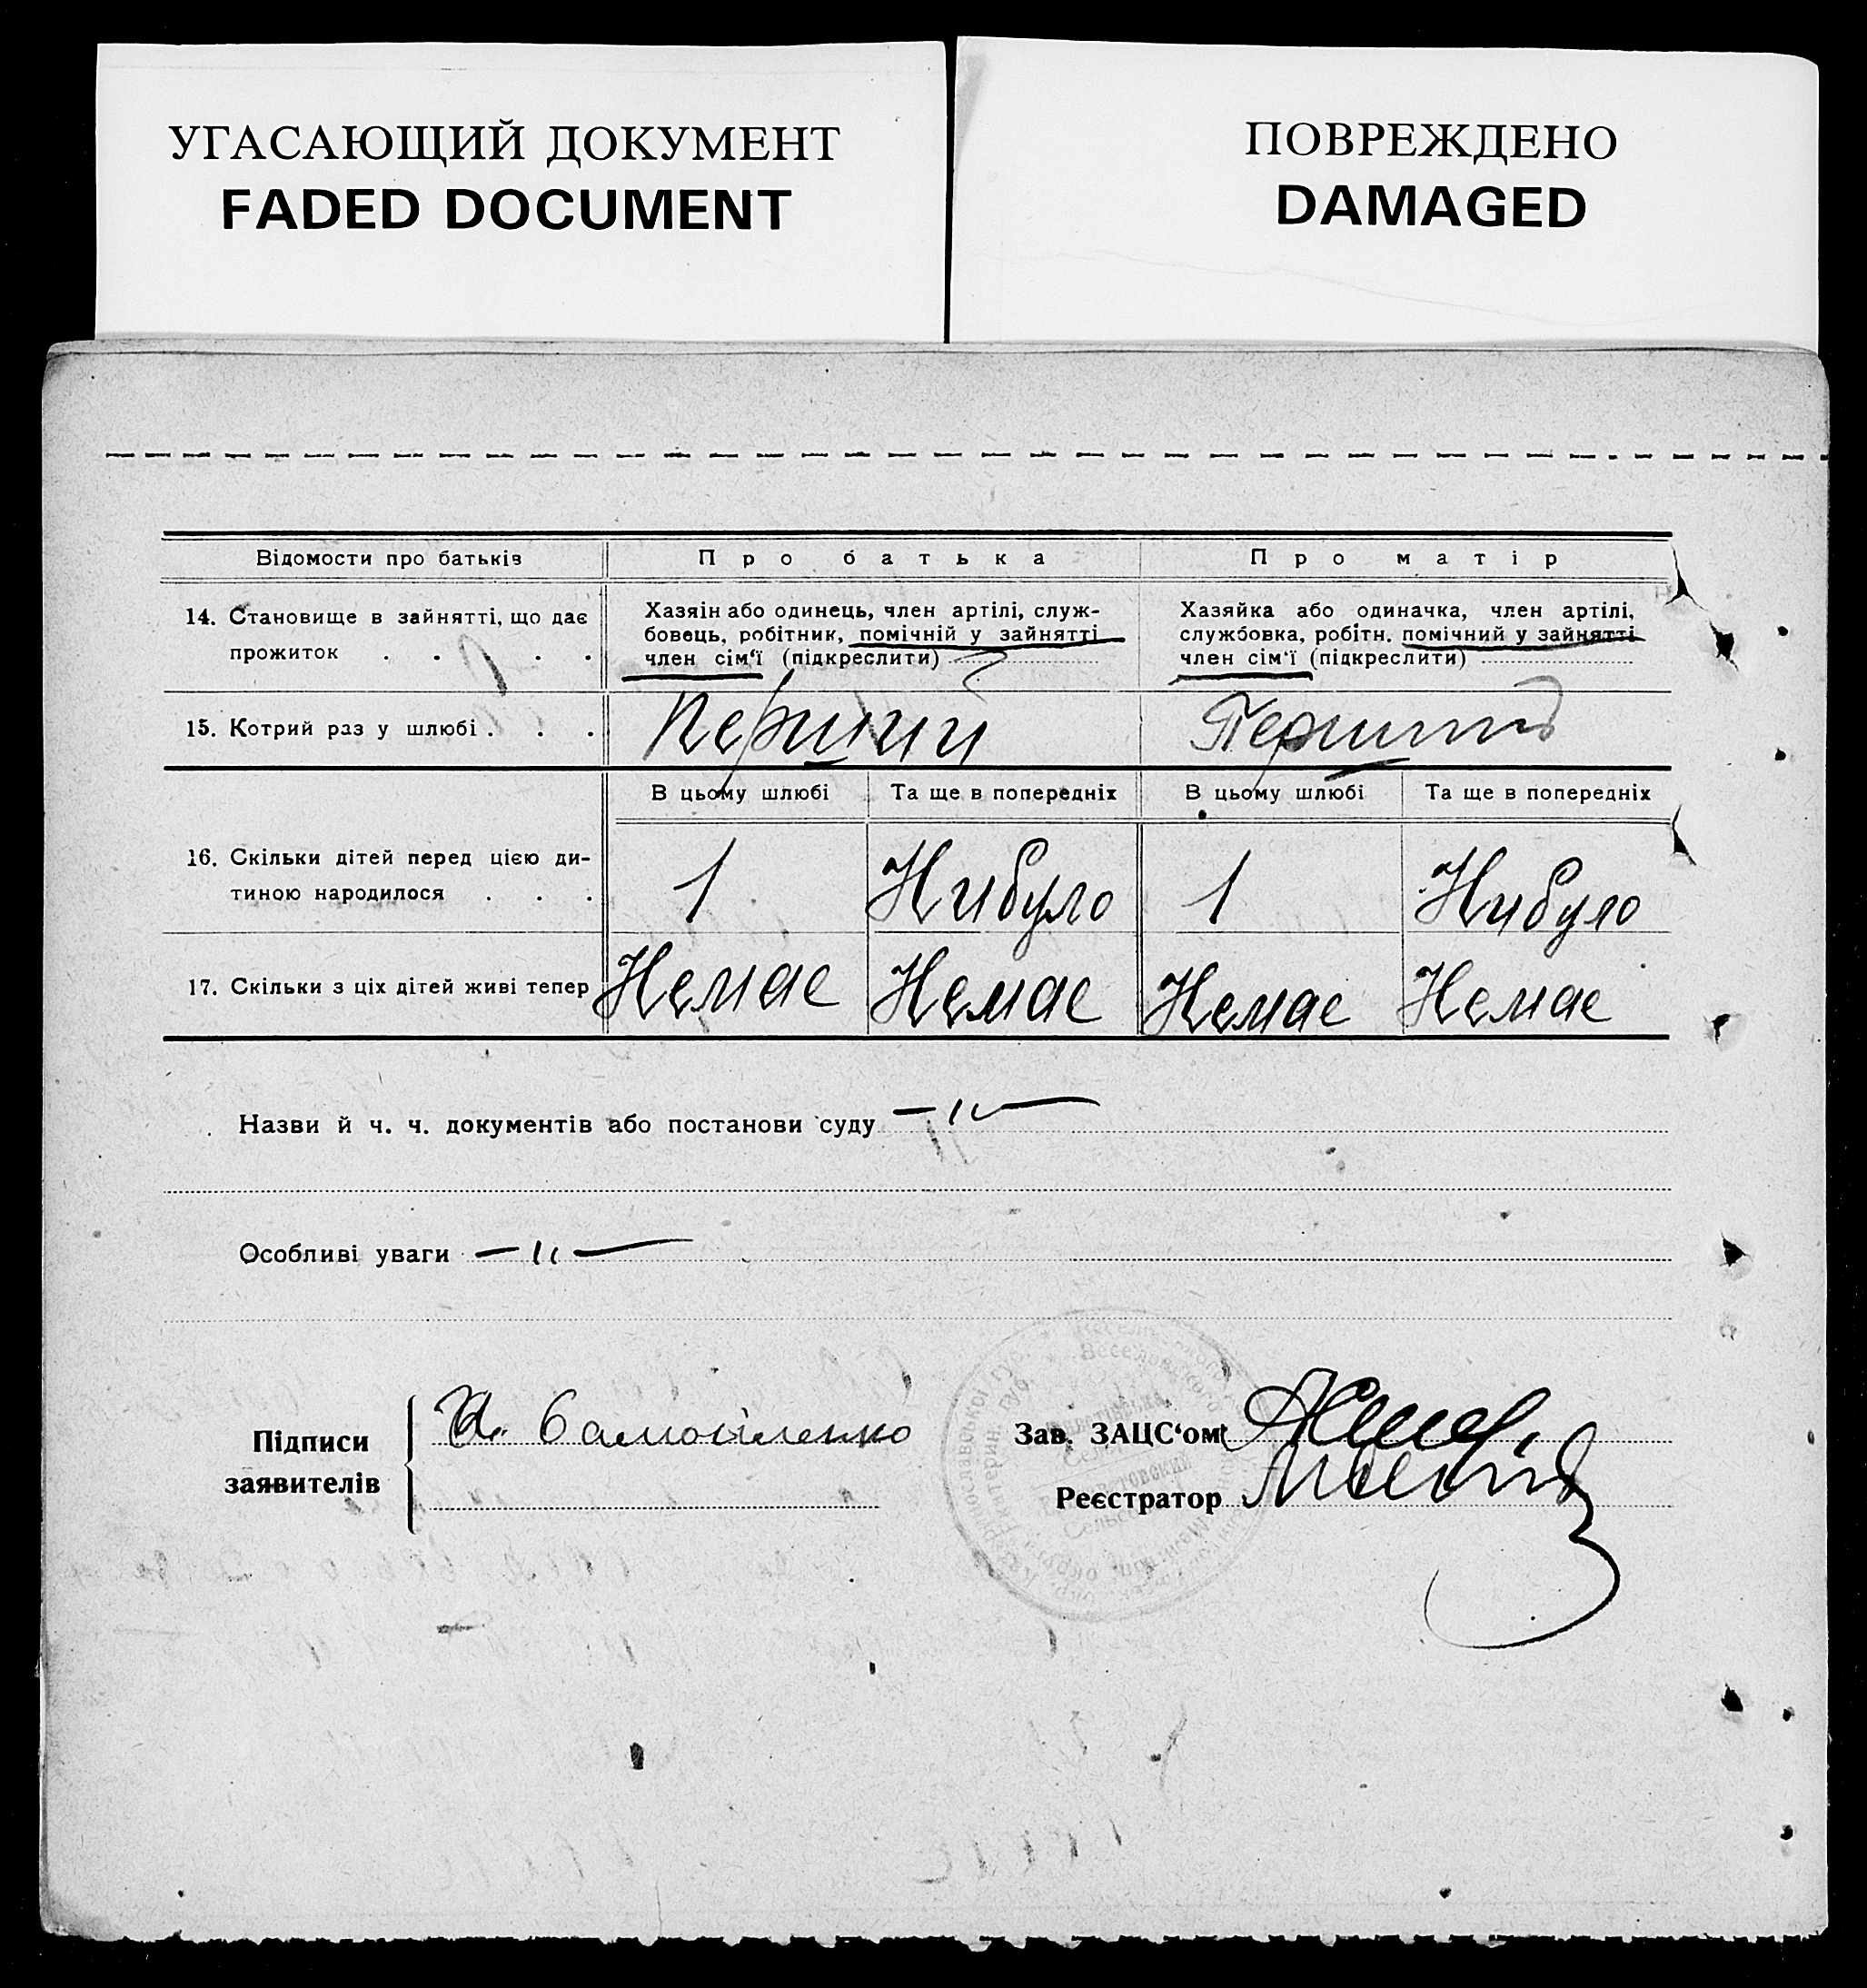 УГАСАЮЩИЙ ДОКУМЕНТ
FADED DOCUMENT
ПОВРЕЖДЕНО
DAMAGED
Відомости про батьків
Про батька
Про матір
14. Становище в зайнятті, що дає
прожиток . . . . .
Хазяін або одинець, член артілі, служ-
бовець, робітник, помічній у зайнятті
член сім‘ї (підкреслити)
Хазяйка або одиначка, член артілі,
службовка, робітн. помічний у зайнятті
член сім‘ї (підкреслити)
15. Котрий раз у шлюбі . . .
Перший
Перший
В цьому шлюбі
Та ще в попередніх
В цьому шлюбі
Та ще в попередніх
16. Скільки дітей перед цією ди-
тиною народилося . . .
1
Нибуло
1
Нибуло
17. Скільки з ціх дітей живі тепер
Немає
Немає
Немає
Немає
Назви й ч. ч. документів або постанови суду — „ —
Особливі уваги — „ —
Підписи
заявителів
Самойленко
Зав. ЗАЦС‘ом
Реєстратор